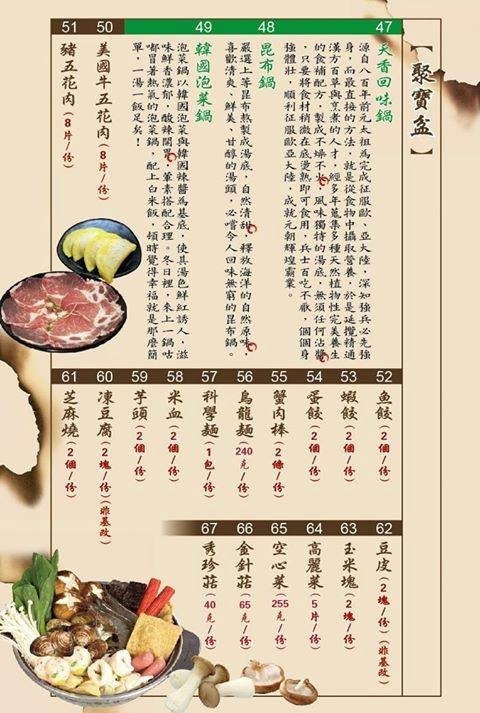 【聚寶盆】
47
天香回味鍋
源自八百年前元太祖為完成征服歐、亞大陸,深知強兵必先強
身,而最直接的方法,就是從食物中攝取營養,於是延攬精通
漢方百草與烹煮的人才,經多年蒐集多種天然植物性完美養生
的食補配方,製成不燥不火、風味獨特的湯底,無須任何沾醬
,只要將食材稍微在底燙熟即可食用,兵士百吃不厭,個個身
強體壯,順利征服歐亞大陸,成就元朝輝煌霸業。
48
昆布鍋
嚴選上等昆布熬製成湯底,自然清甜,釋放海洋的自然原味,
喜歡清爽、鮮美、甘醇的湯頭,必嚐令人回味無窮的昆布鍋。
49
韓國泡菜鍋
泡菜鍋以韓國泡菜與韓國辣醬為基底,使其湯色鮮紅誘人,滋
味鮮香濃郁,酸辣開胃,葷素搭配合理。冬日裡,來上一鍋咕
嘟冒著熱氣的泡菜鍋,配上白米飯,頓時覺得幸福就是那麼簡
單,一湯一飯足矣!
50
美國牛五花肉(8片/份)
51
豬五花肉(8片/份)
52
魚餃(2個/份)
53
蝦餃(2個/份)
54
蛋餃(2個/份)
55
蟹肉棒(2條/份)
56
烏龍麵(240克/份)
57
科學麵(1包/份)
58
米血(2個/份)
59
芋頭(2個/份)
60
凍豆腐(2塊/份)(非基改)
61
芝麻燒(2個/份)
62
豆皮(2塊/份)(非基改)
63
玉米塊(2塊/份)
64
高麗菜(5片/份)
65
空心菜(255克/份)
66
金針菇(65克/份)
67
秀珍菇(40克/份)